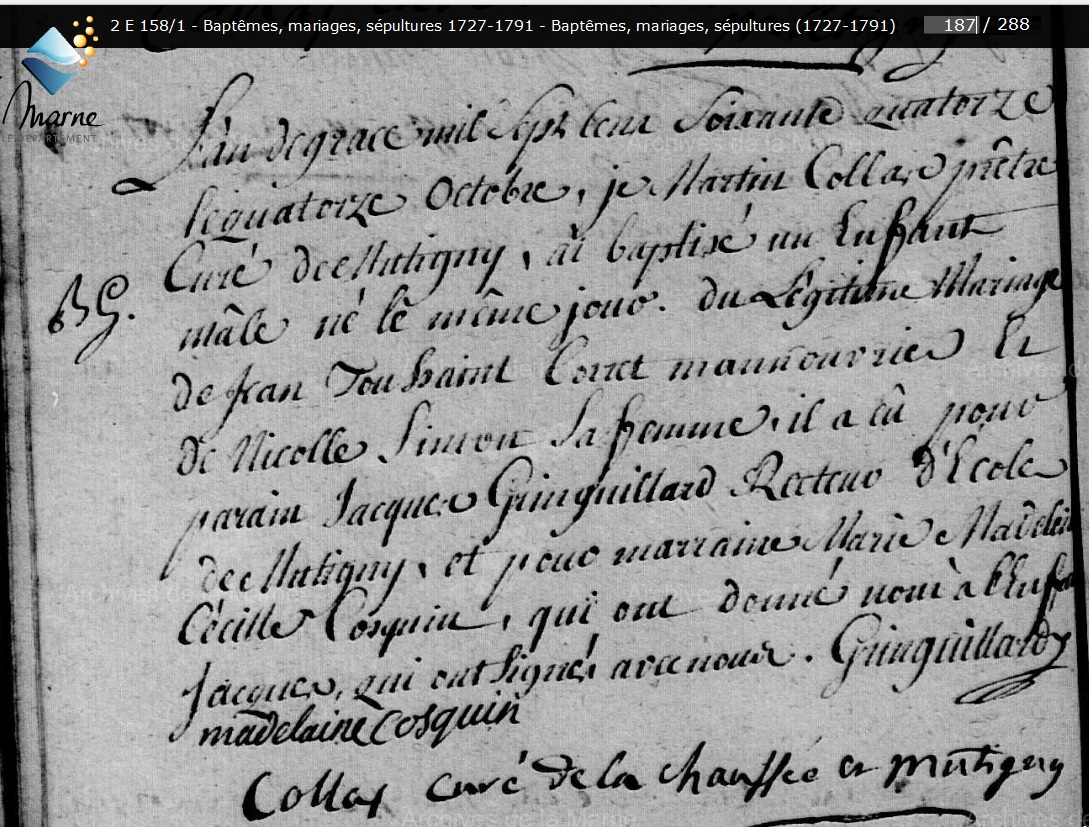 2 E 158/1 - Baptêmes, mariages, sépultures 1727-1791 - Baptêmes, mariages, sépultures (1727-1791) 187 / 288
Marne
LE DÉPARTEMENT
L'an de grace mil Sept Cent Soixante quatorze
le quatorze Octobre, je Martin Collas prêtre
Curé de Mutigny, ai baptisé un Enfant
BG.
mâle né le même jour. du Légitime Mariage
de Jean Toussaint Corret mannouvrier Et
de Nicolle Simon Sa femme, il a eû pour
parain Jacques Guinguillard Recteur d'Ecole
de Mutigny, et pour marraine Marie Madelein
Cécille Cosquin, qui ont donné nom à l'Enfan
Jacques, qui ont Signé avec nous. Guinguillard
madelaine Cosquin
Collas curé de la chaussée et mutigny
Archives de la Marne